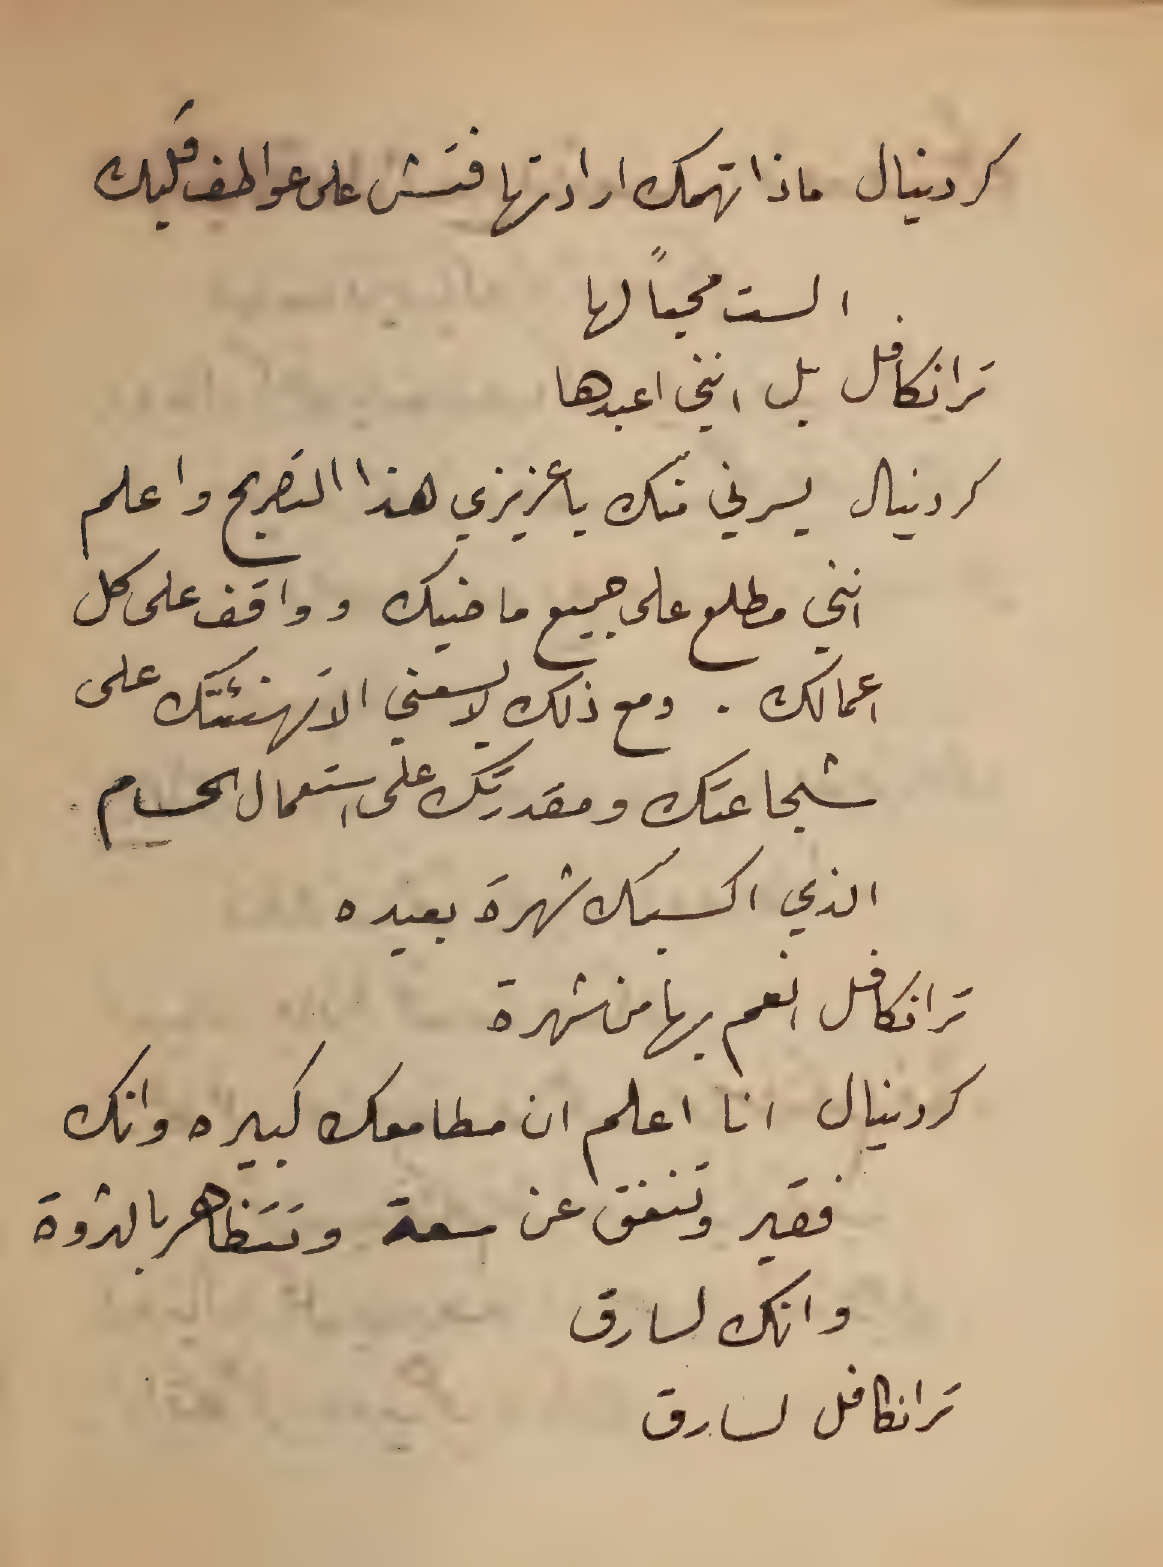 كردينال ماذا تهمك ارادتها فتش على عواطف قلبك
الست محباً لها
ترانكافل بل انني اعبدها
كردينال يسرني منك ياعزيزي هذا التصريح واعلم
انني مطلع على جميع ماضيك وواقف على كل
اعمالك . ومع ذلك لايسعني الا تهنئتك على
شجاعتك ومقدرتك على استعمال الحسام
الذي اكسبك شهرة بعيده
ترانكافل انعم بها من شهرة
كردينال انا اعلم ان مطامعك كبيره وانك
فقير وتنفق عن سعة وتتظاهر بالثروة
وانك لسارق
ترانكافل لسارق